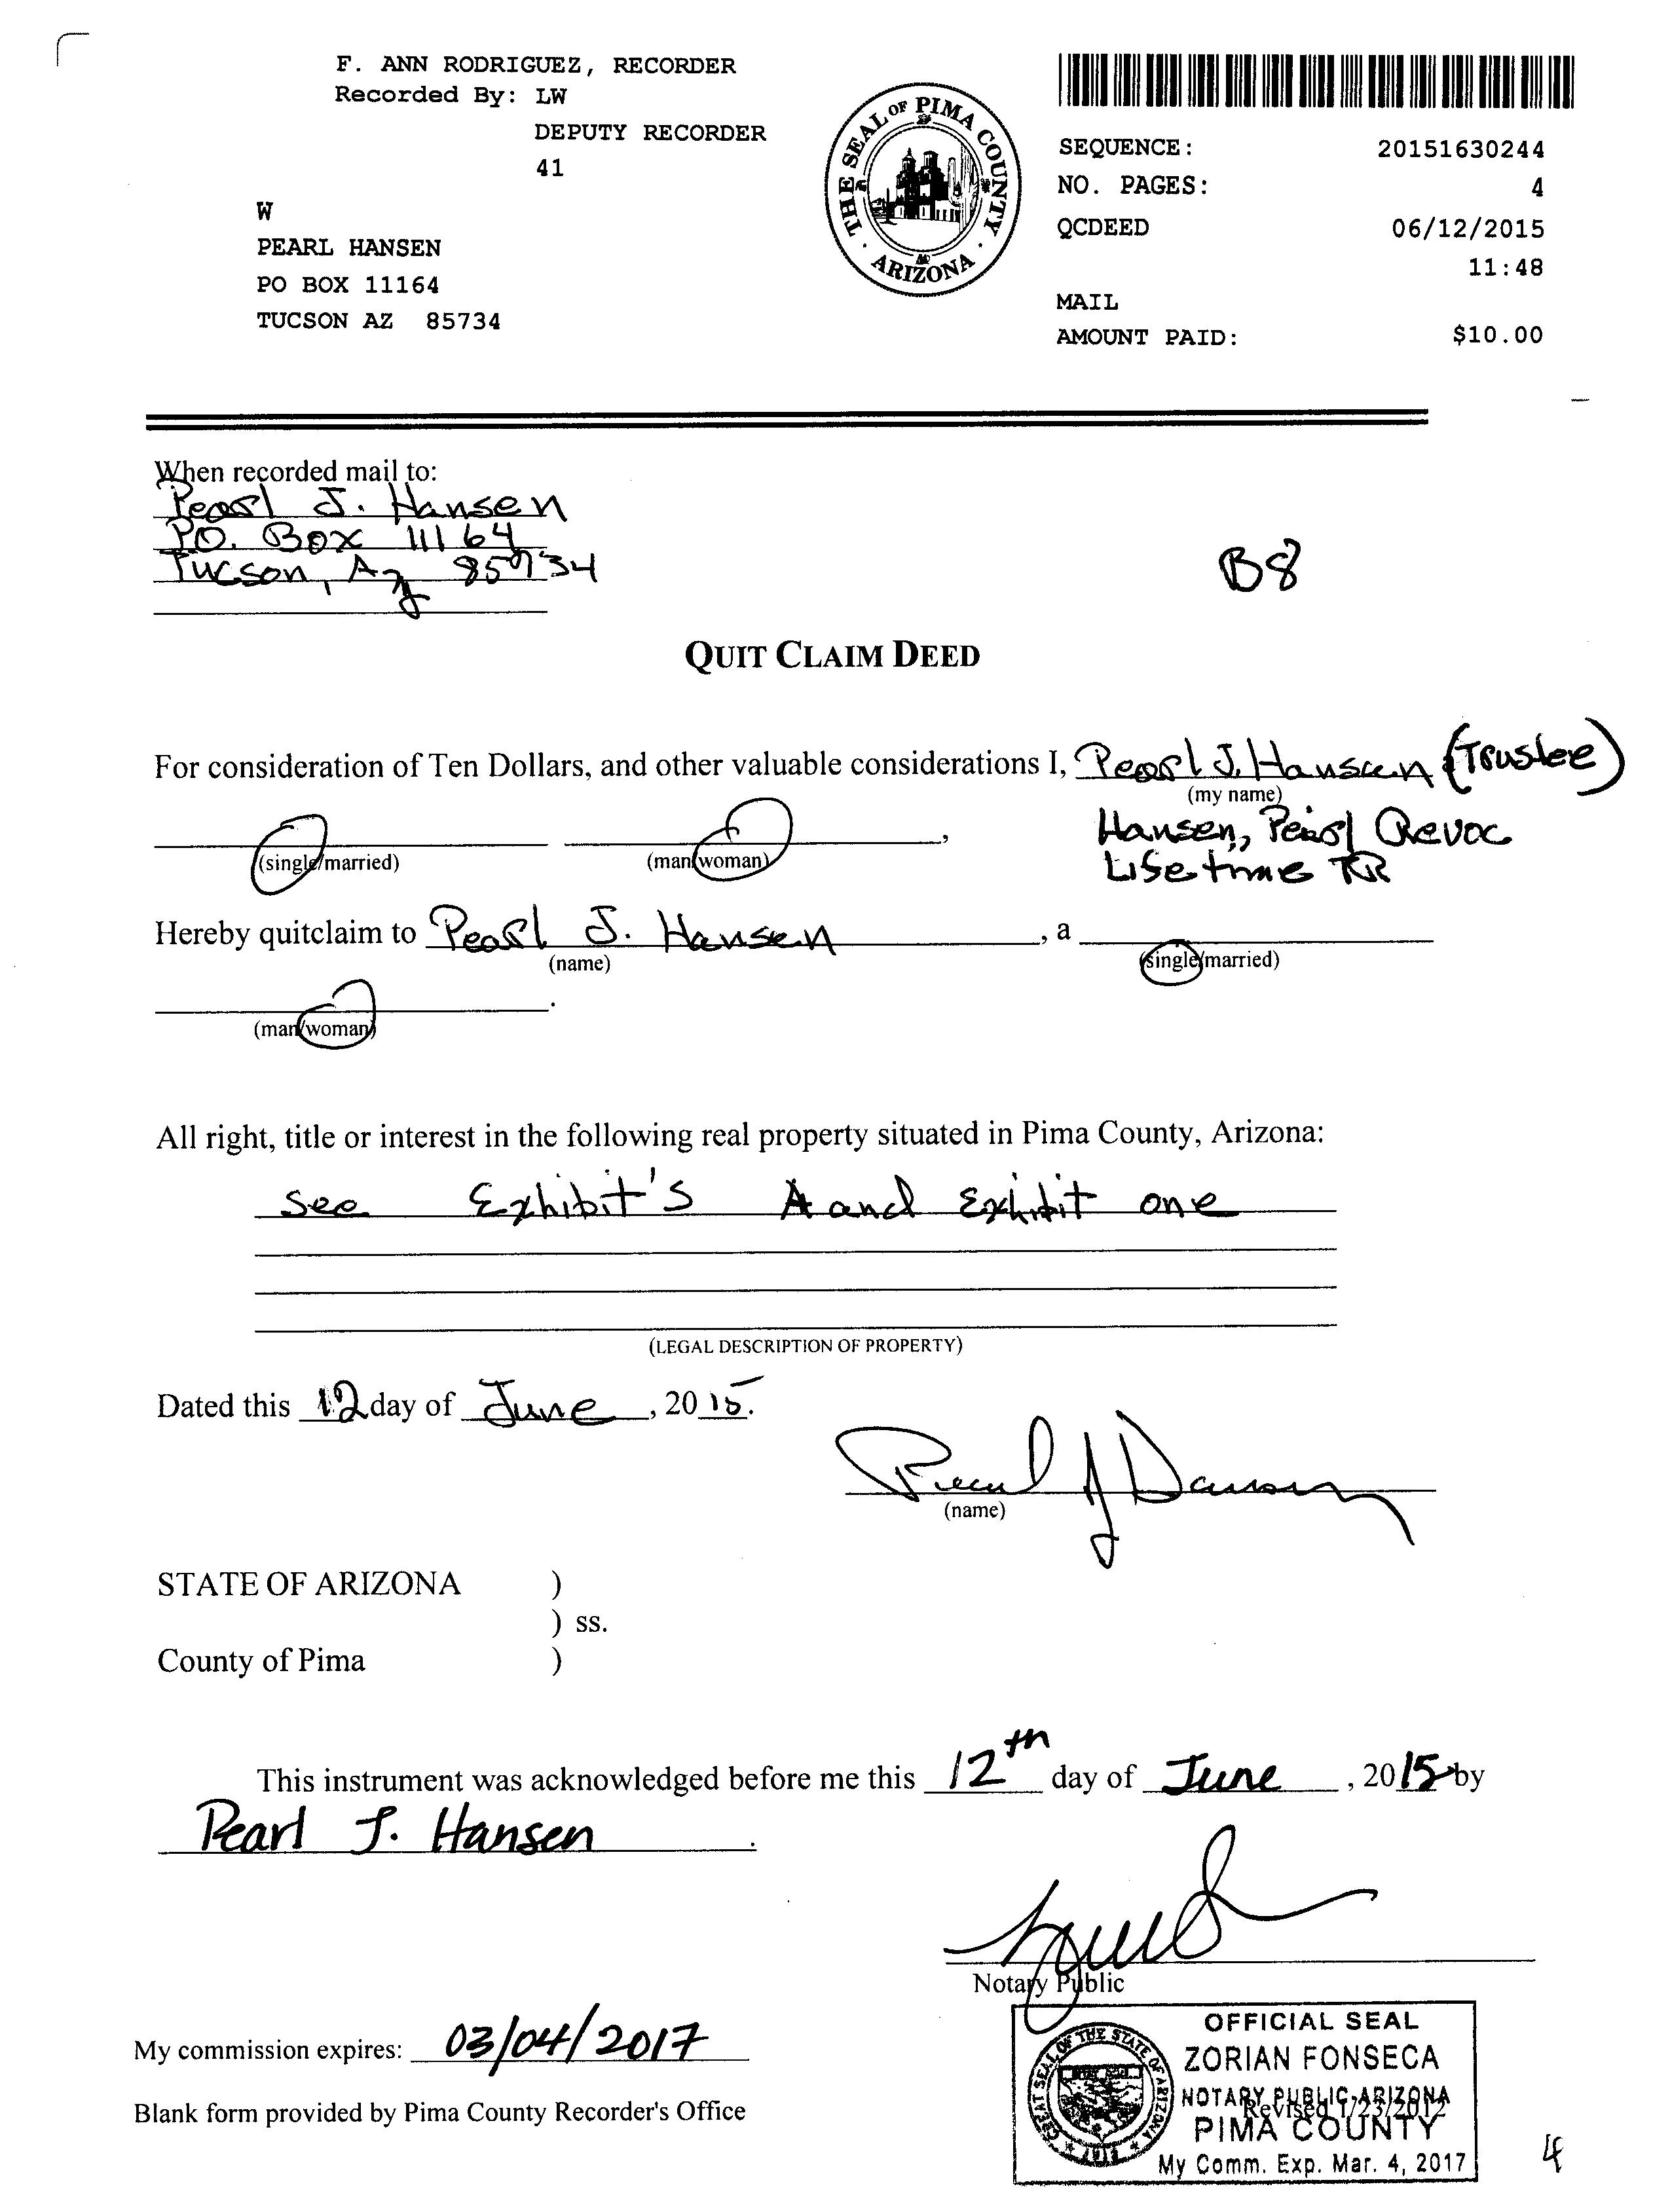 F. ANN RODRIGUEZ, RECORDER
Recorded By: LW
DEPUTY RECORDER
41
W
PEARL HANSEN
PO BOX 11164
TUCSON AZ 85734
THE SEAL OF PIMA COUNTY · ARIZONA ·
SEQUENCE: 20151630244
NO. PAGES: 4
QCDEED 06/12/2015
11:48
MAIL
AMOUNT PAID: $10.00
When recorded mail to:
Pearl J. Hansen
P.O. Box 11164
Tucson, Az 85734
B8
QUIT CLAIM DEED
For consideration of Ten Dollars, and other valuable considerations I, Pearl J. Hansen (Trustee)
(my name)
Hansen, Pearl Revoc
Lifetime TR
(single/married) (man/woman) ,
Hereby quitclaim to Pearl J. Hansen , a
(name) (single/married)
.
(man/woman)
All right, title or interest in the following real property situated in Pima County, Arizona:
See Exhibit's A and Exhibit one
(LEGAL DESCRIPTION OF PROPERTY)
Dated this 12 day of June , 20 15.
Pearl J Hansen
(name)
STATE OF ARIZONA )
) ss.
County of Pima )
This instrument was acknowledged before me this 12th day of June , 2015 by
Pearl J. Hansen .
Notary Public
My commission expires: 03/04/2017
Blank form provided by Pima County Recorder's Office
GREAT SEAL OF THE STATE OF ARIZONA
1912
OFFICIAL SEAL
ZORIAN FONSECA
NOTARY PUBLIC-ARIZONA
Revised 1/23/2012
PIMA COUNTY
My Comm. Exp. Mar. 4, 2017
4